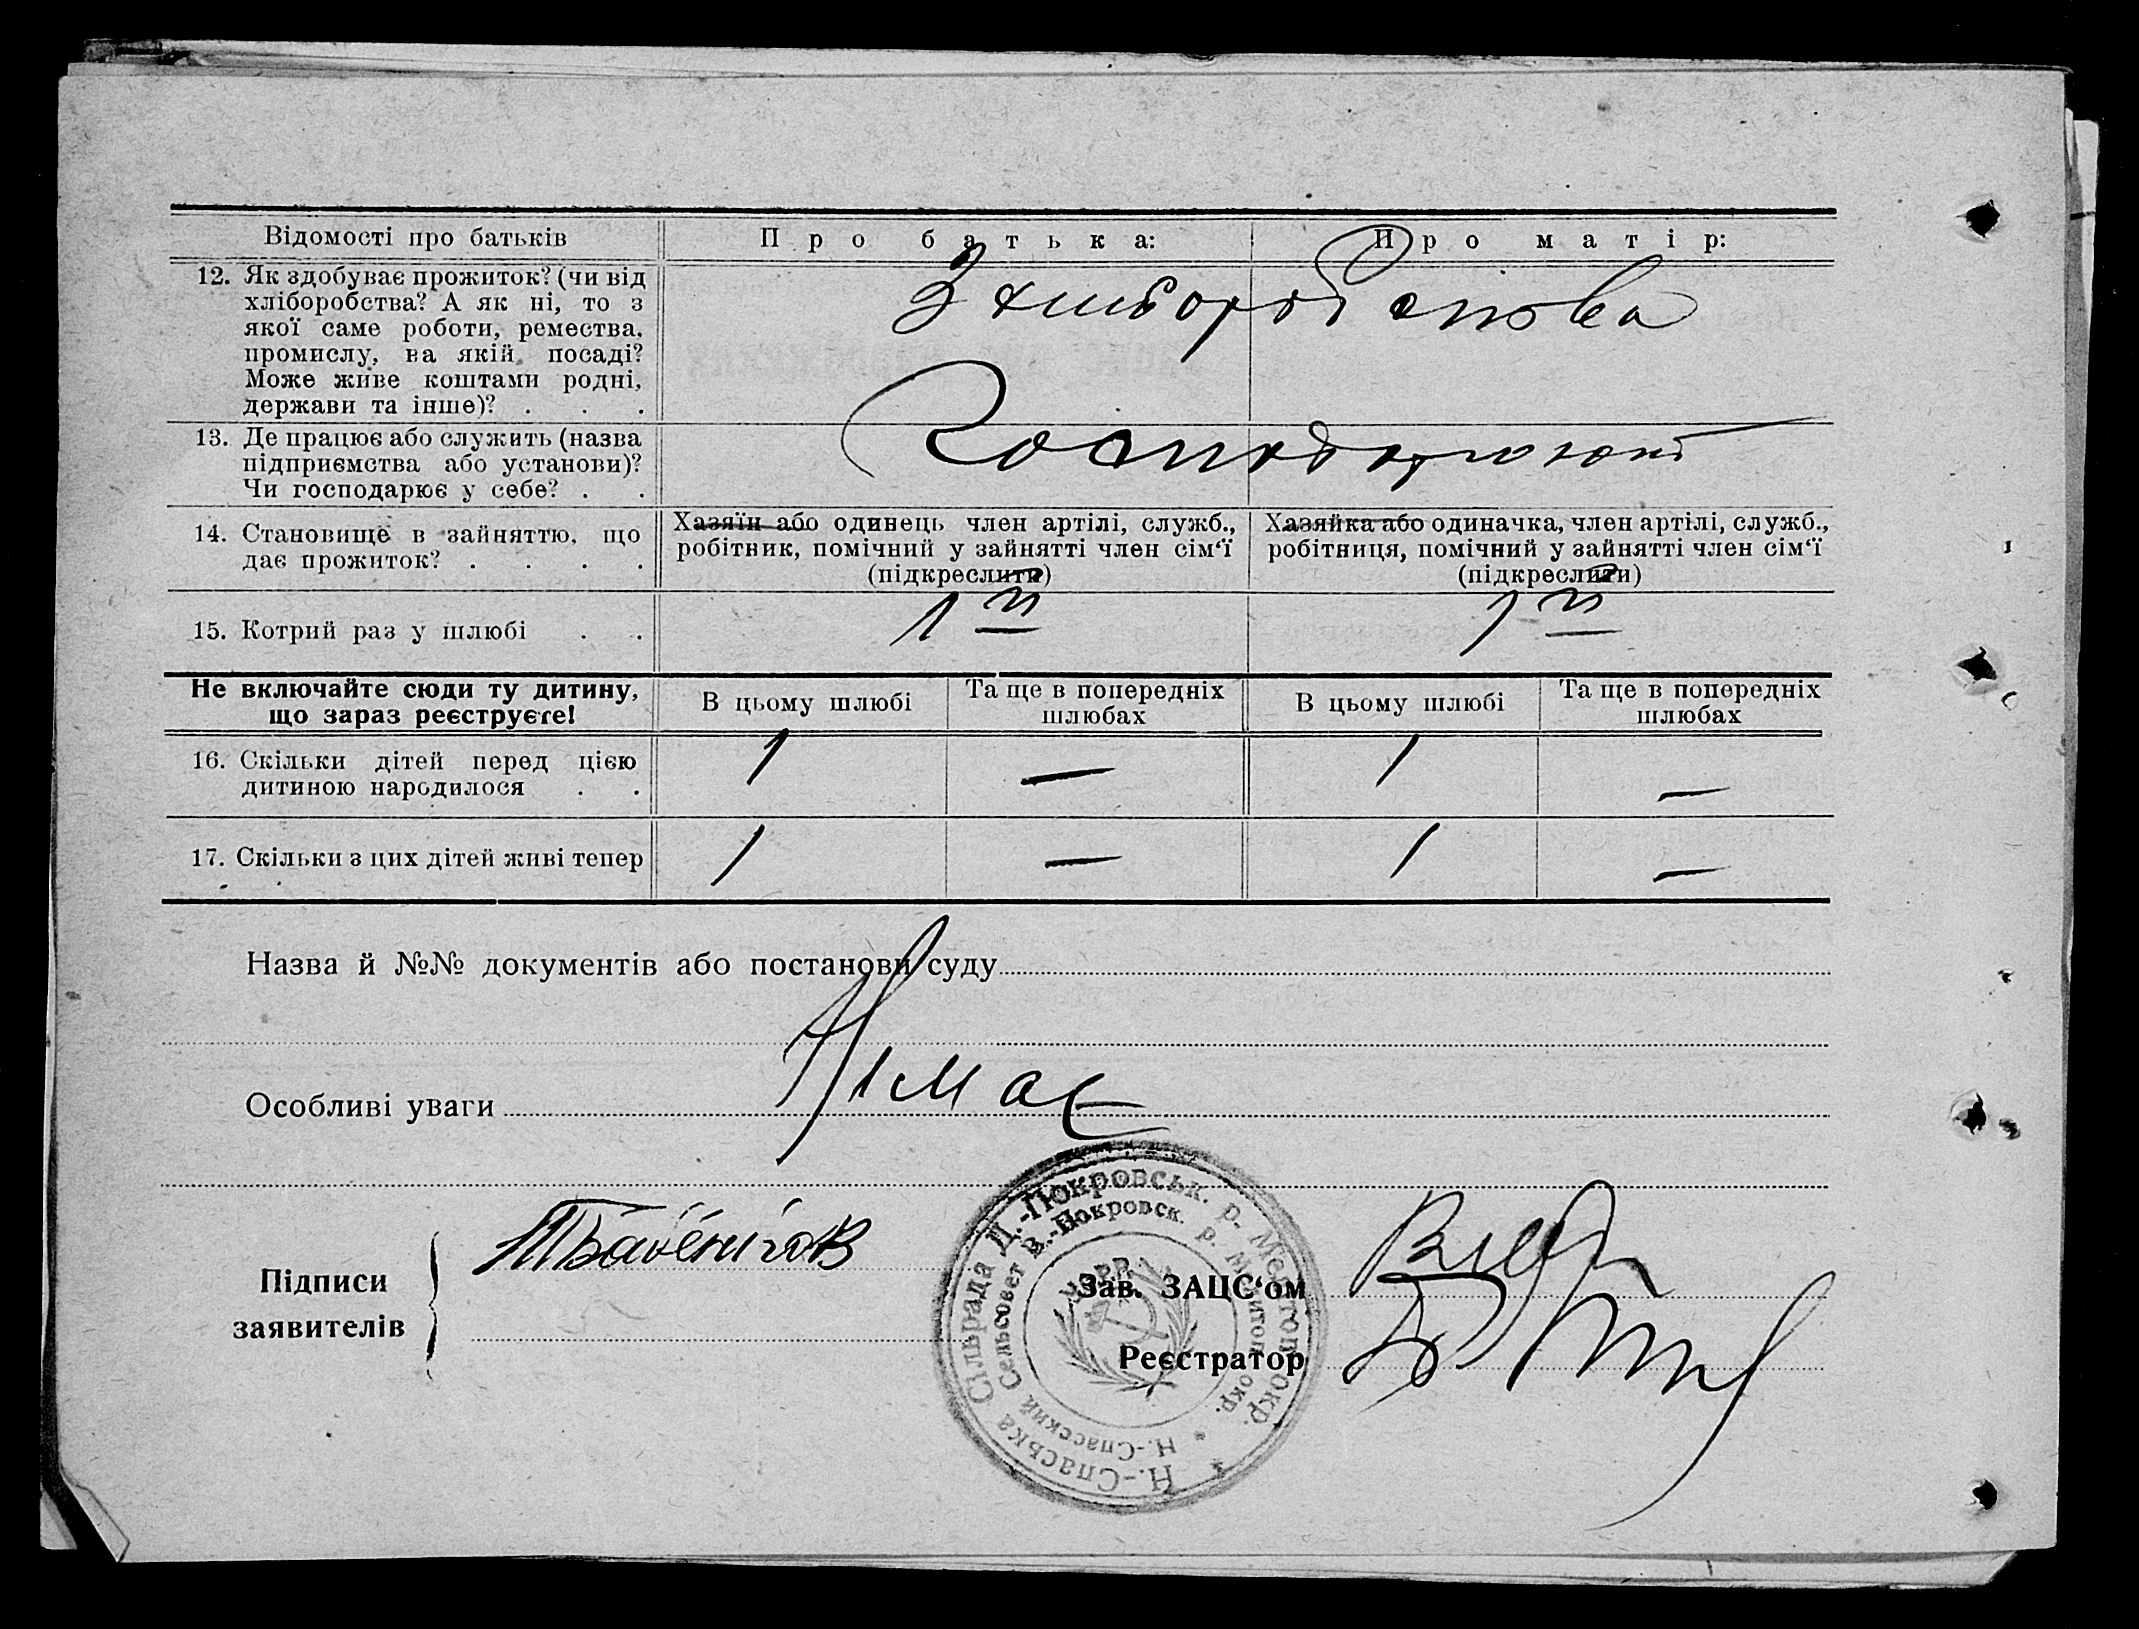 Відомості про батьків
Про батька:
Про матір:
12. Як здобуває прожиток? (чи від
хліборобства? А як ні, то з
якої саме роботи, ремества,
промислу, на якій посаді?
Може живе коштами родні,
держави та інше)? . . .
З хліборобства
13. Де працює або служить (назва
підприємства або установи)?
Чи господарює у себе? . .
Господарюють
14. Становище в зайняттю, що
дає прожиток? . . . .
Хазяїн або одинець член артілі, служб.,
робітник, помічний у зайнятті член сім‘ї
(підкреслити)
Хазяйка або одиначка, член артілі, служб.,
робітниця, помічний у зайнятті член сім‘ї
(підкреслити)
15. Котрий раз у шлюбі . .
1й
1й
Не включайте сюди ту дитину,
що зараз реєструєте!
В цьому шлюбі
Та ще в попередніх
шлюбах
В цьому шлюбі
Та ще в попередніх
шлюбах
16. Скільки дітей перед цією
дитиною народилося . .
1 — 1 —
17. Скільки з цих дітей живі тепер
1 — 1 —
Назва й №№ документів або постанови суду
Немає
Особливі уваги
Підписи
заявителів
Зав. ЗАЦС‘ом
Реєстратор
Н.-Спаська Сільрада Д.-Покровськ. р. Мелітоп. окр.
Н.-Спасский Сельсовет В.-Покровск. р. Мелитоп. окр.